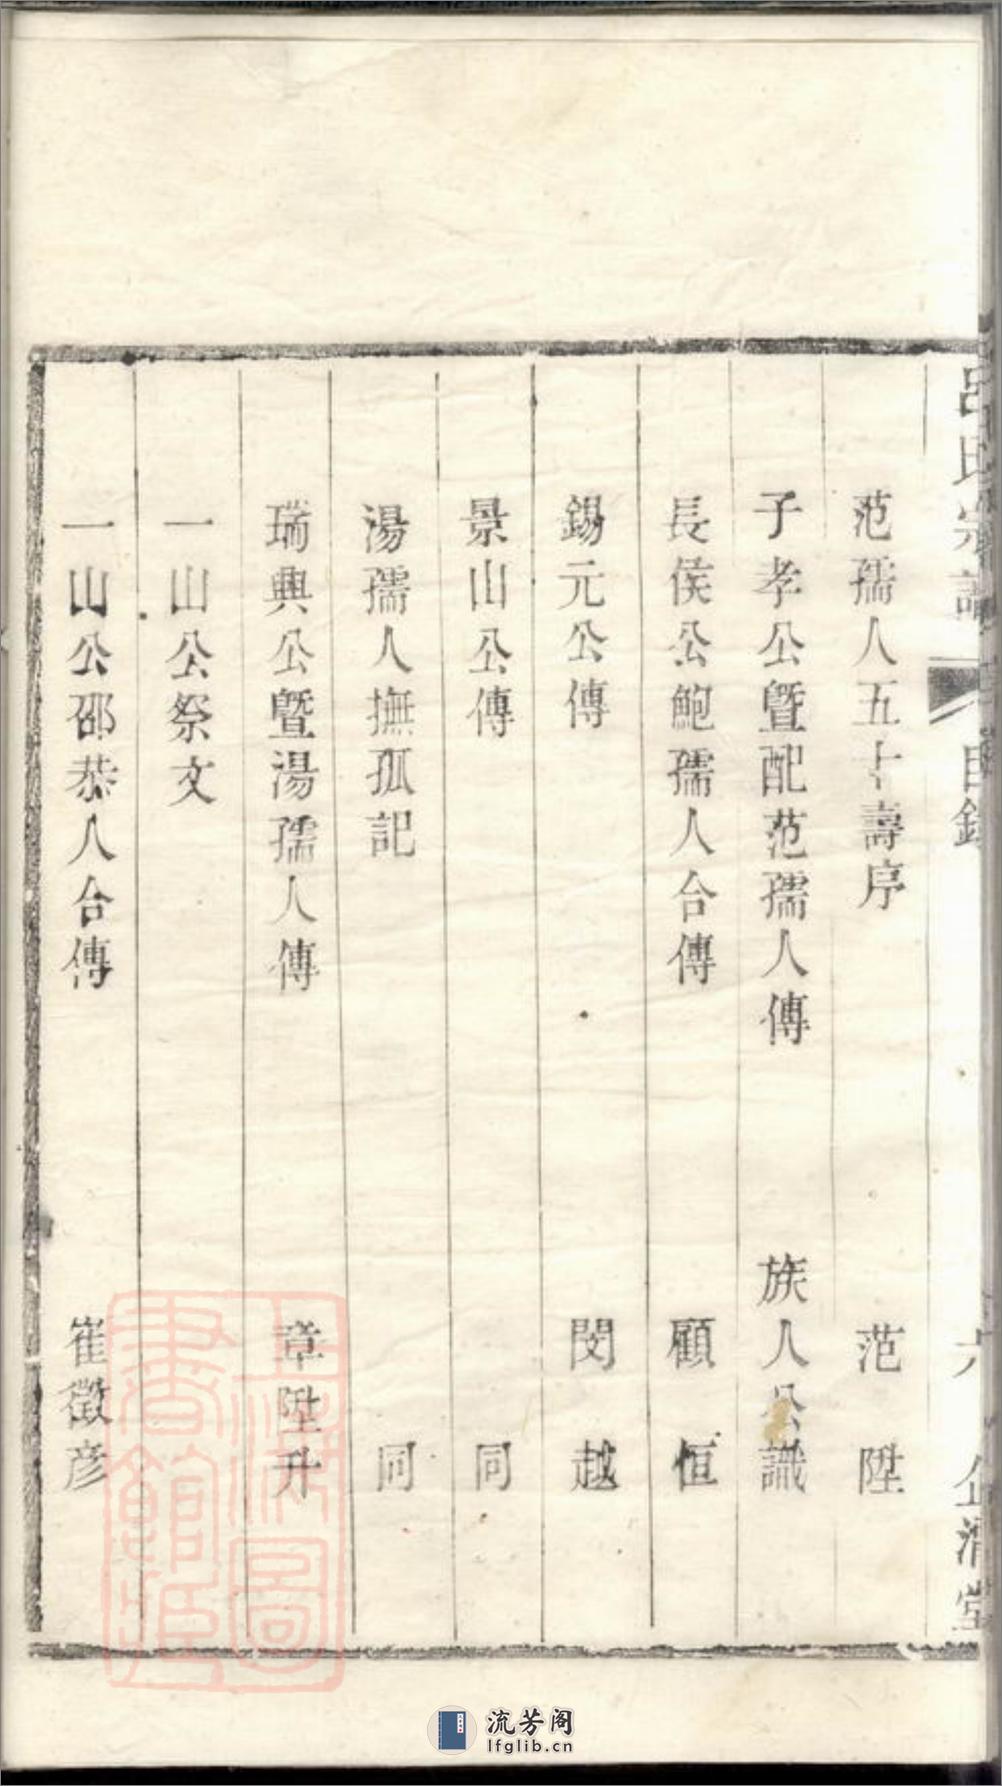 呂氏宗譜 目錄 六
范孺人五十壽序 范陞
子孝公暨配范孺人傳 族人公識
長侯公鮑孺人合傳 顧恒
錫元公傳 閔越
景山公傳 同
湯孺人撫孤記 同
瑞興公暨湯孺人傳 章陞升
一山公祭文
一山公邵恭人合傳 崔徵彦
上海圖書館藏
流芳阁
lfglib.cn